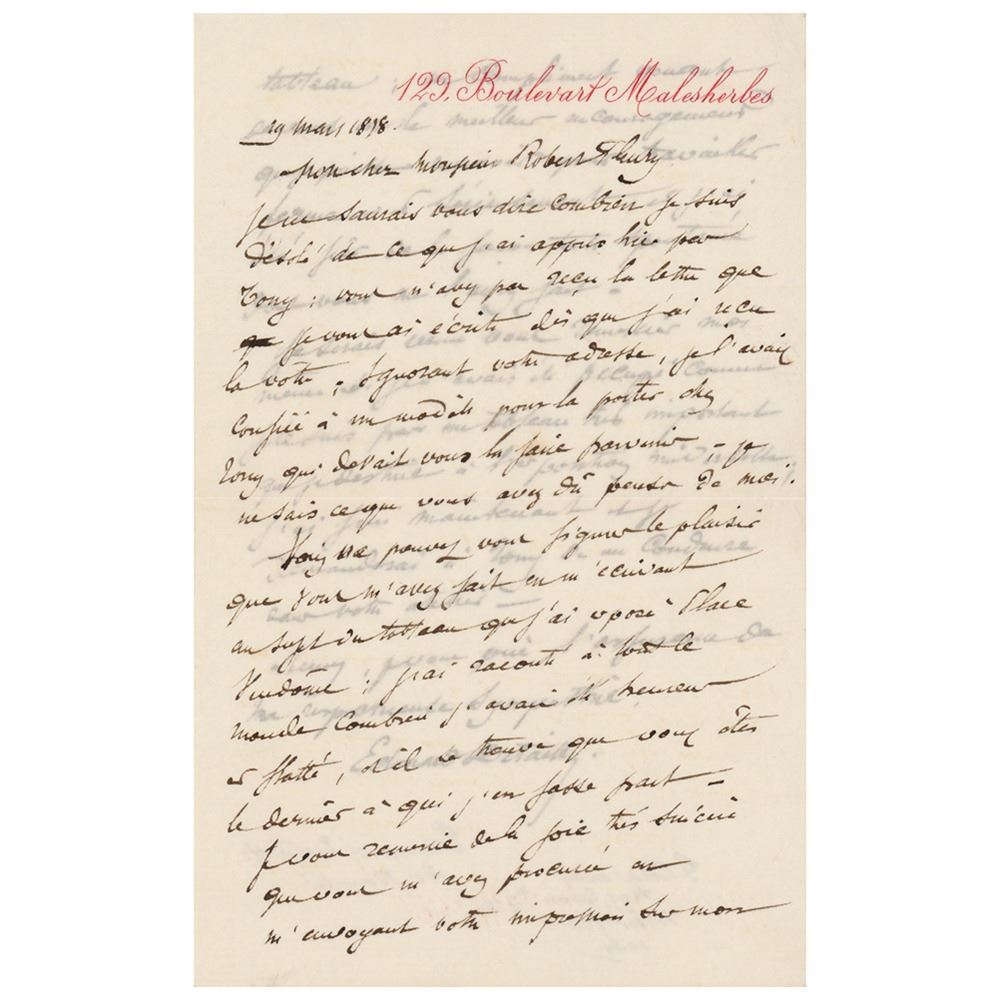 129. Boulevart Malesherbes
29 mars 1878.
Mon cher Monsieur Robert Fleury
je ne saurais vous dire combien je suis
désolé de ce que j'ai appris hier par
Tony : vous n'avez pas reçu la lettre que
je vous ai écrite dès que j'ai reçu
la votre ; ignorant votre adresse, je l'avais
confiée à un modèle pour la porter chez
Tony qui devait vous la faire parvenir – je
ne sais ce que vous avez dû penser de moi.
Vous ne pouvez vous figurer le plaisir
que vous m'avez fait en m'écrivant
au sujet du tableau que j'ai exposé Place
Vendôme : j'ai raconté à tout le
monde combien j'avais été heureux
et flatté, et il se trouve que vous êtes
le dernier à qui j'en fasse part –
Je vous remercie de la joie très sincère
que vous m'avez procurée en
m'envoyant votre impression sur mon